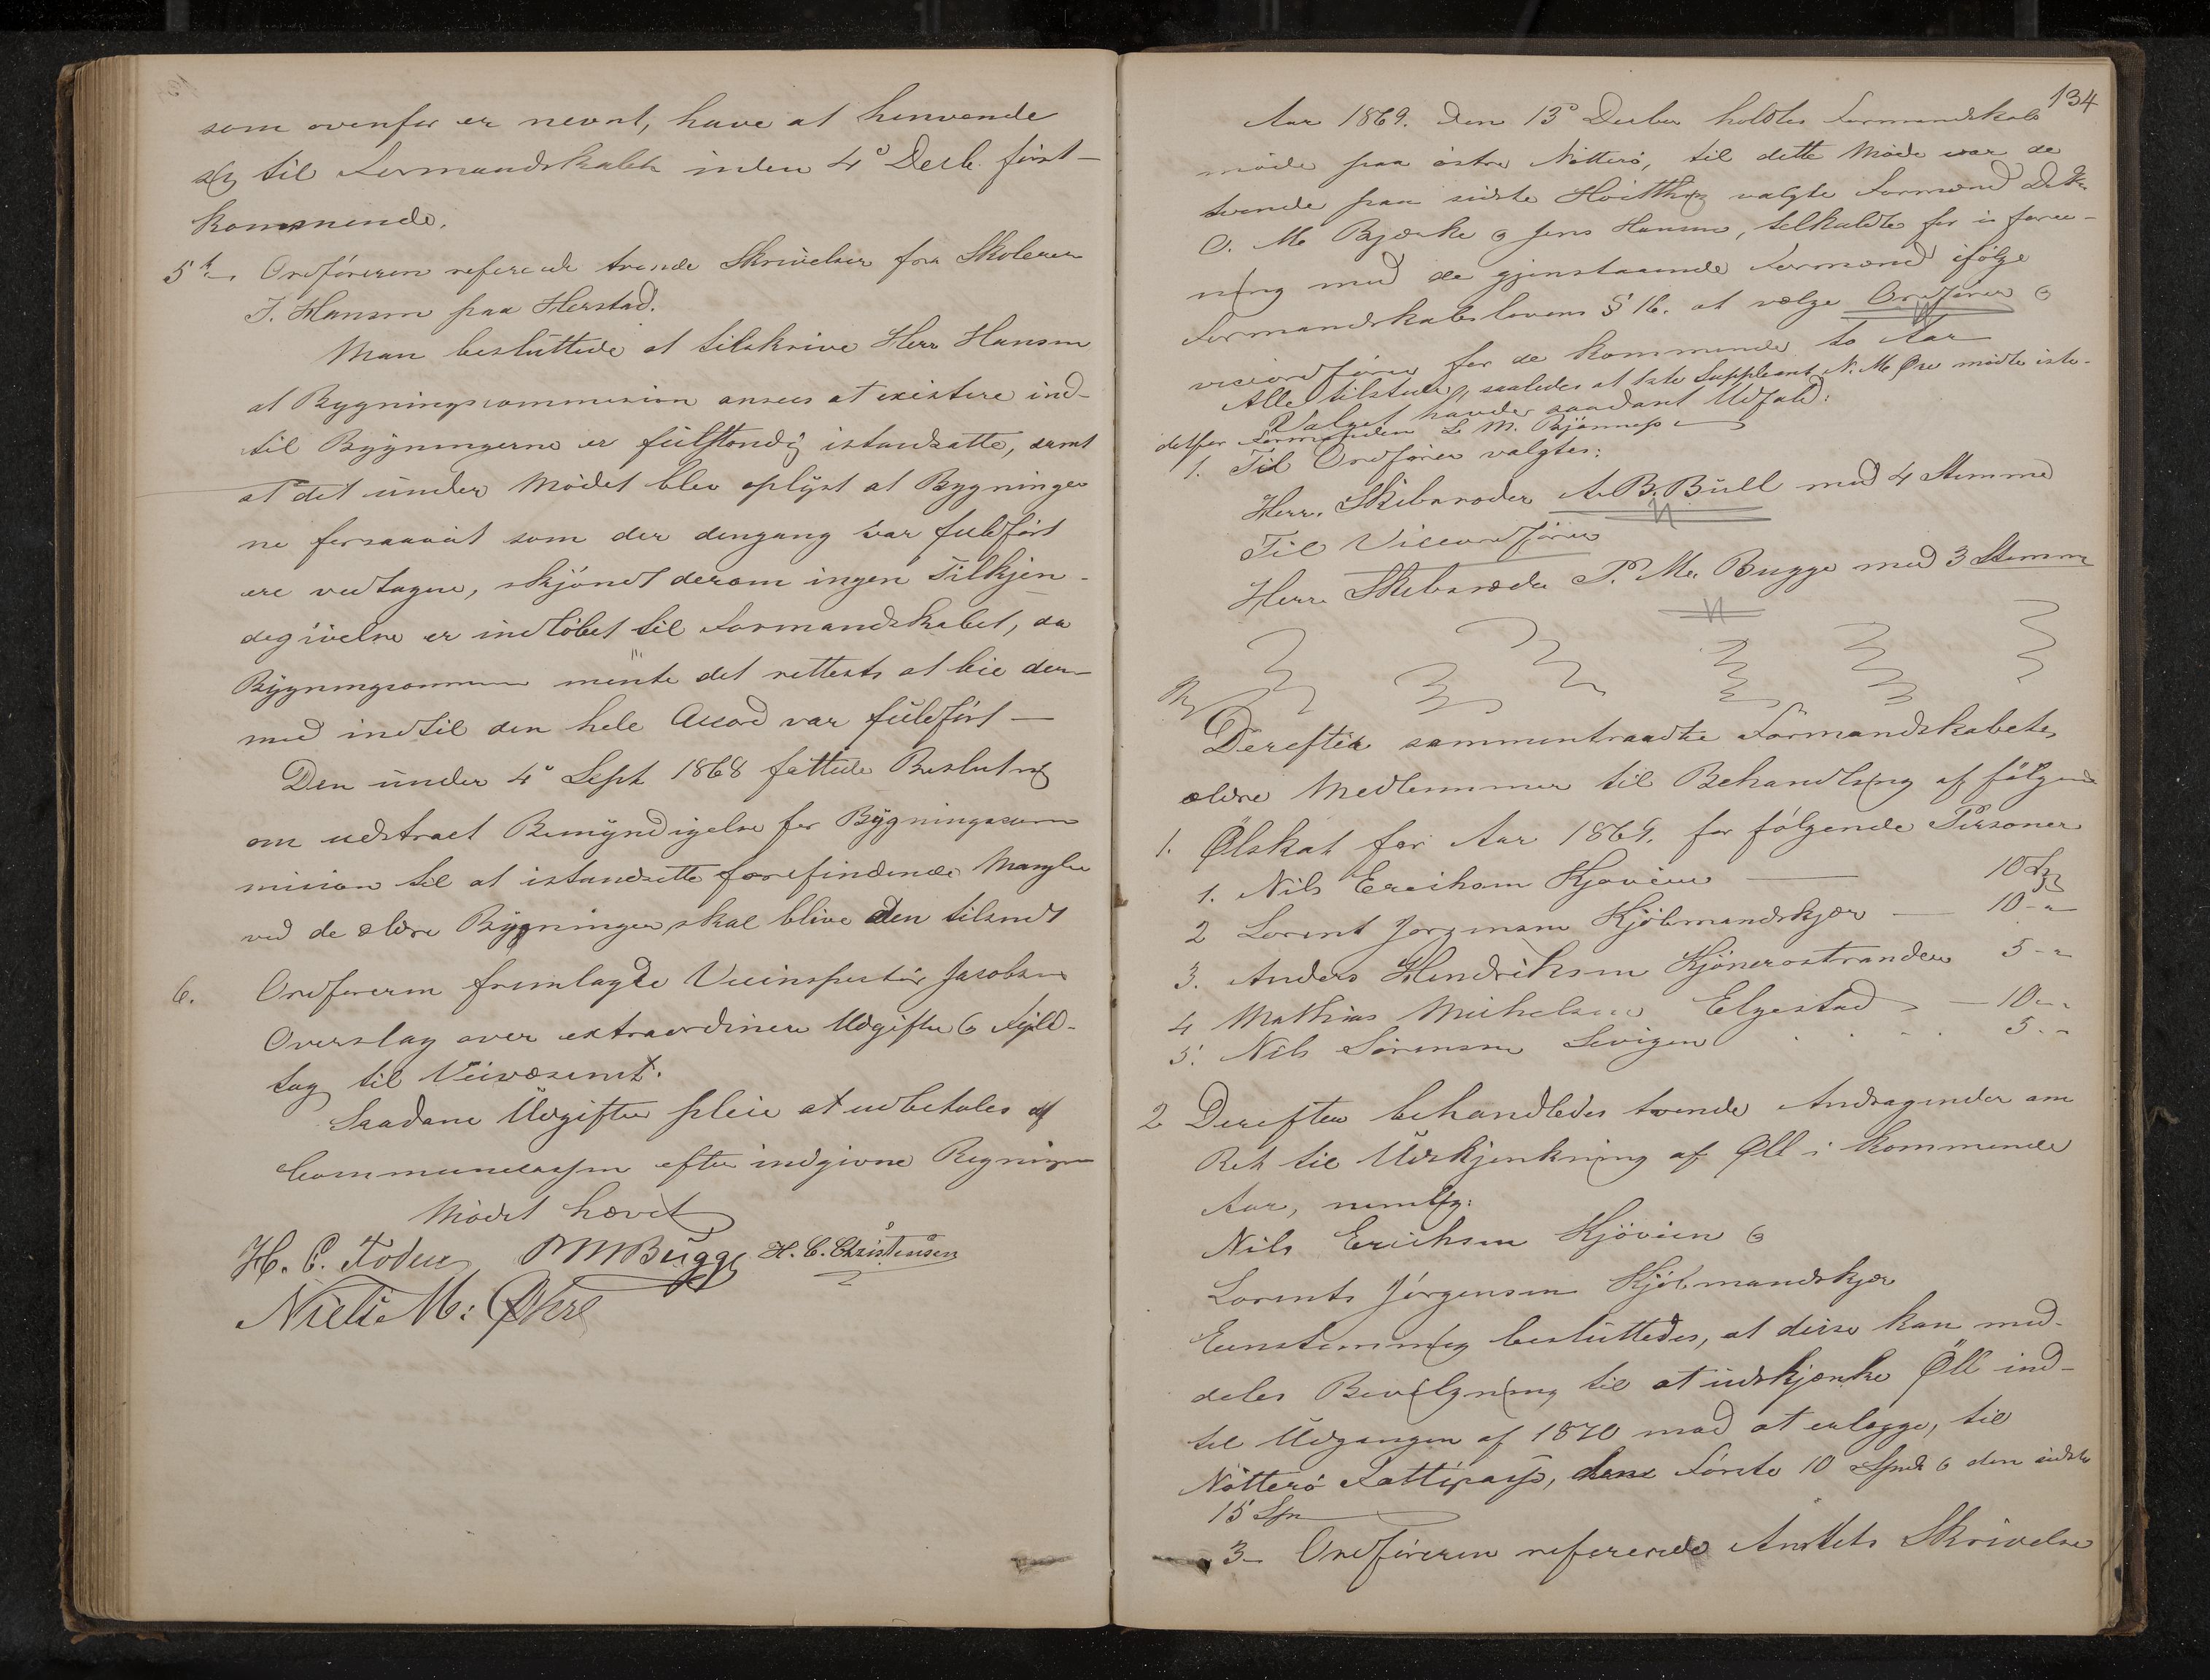 som ovenfor er nevnt, have at henvende
sig til Formandskabet inden 4de Decbr. først-
kommende.
5te Ordføreren refererede trende Skrivelser fra Skolelærer
J. Hansen paa Herstad.
Man besluttede at tilskrive Herr Hansen
at Bygningscommission ansees at existere ind-
til Bygningerne er fulstændig istandsatte, samt
at det under Mødet blev oplyst at Bygninger
ne forsaavit som der dengang var fuldført
ere vedtagne, skjøndt derom ingen Tilkjen-
degivelse er indløbet til Formandskabet, da
Bygningscommn mente det rettest at bie der-
med indtil den hele Accord var fuldført –
Den under 4de Sept 1868 fattede Beslutning
om udstract Bemyndigelse for Bygningscom
mision til at istandsætte forefindende Mangler
ved de eldre Bygninger skal blive den tilsendt
6. Ordføreren fremlagde Veiinspectør Jacobsens
Overslag over extraordinere Udgifter & Fyld-
tag til Veivæsenet.
Saadane Udgifter pleie at udbetales af
Communecassen efter indgivne Regninger
Mødet hævet
H. C. Foden PMBugge H. C. Christensen
Niels M: Øhre
134
Aar 1869. den 13de Decbr holdtes Formandskabs
møde paa østre Nøtterø, til dette Møde var de
tvende paa sidste Høitthing valgte Formænd
O. M. Bjerke & Jens Hansen, tilkaldte for i foree-
ning med de gjenstaaende Formænd ifølge
Formandskabslovens § 16. at vælge Ordfører &
viceordfører for de kommende to Aar
Alle tilstede, saaledes at 1ste Suppleant N. M. Øre mødte iste-
Valget havde saadant Udfald:
detfor Formanden L. M. Bjønness
1. Til Ordfører valgtes:
Herr. Skibsreder A. B. Bull med 4 Stemmer
Til Viceordfører
Herr. Skibsreder P. M. Bugge med 3 Stemmer
Derefter sammentraadte Formandskabets
ældre Medlemmer til Behandling af følgende
1. Ølskat for Aar 1869. for følgende Personer
1. Nils Erichsen Kjøvien — 10
2 Lorent Jørgensen Kjøbmandskjær — 10 - "
3. Anders Hendriksen Kjønerostranden 5 - "
4 Mathias Michelsen Elgestad — 10 - "
5. Nils Sørensen Sevigen . . . 5 - "
2 Derefter behandledes tvende Andragender om
Ret til Udskjenkning af Øll i kommende
Aar, nemlig:
Nils Erichsen Kjøvien &
Lorents Jørgensen Kjøbmandskjær
Eenstemmig besluttedes, at disse kan med-
deles Bevilgning til at udskjænke Øll ind-
til Udgangen af 1870 mod at erlægge, til
Nøtterø Fattigcasse, den Første 10 Spd & den sidste
15 Spd
3- Ordføreren refererede Amtets Skrivelse